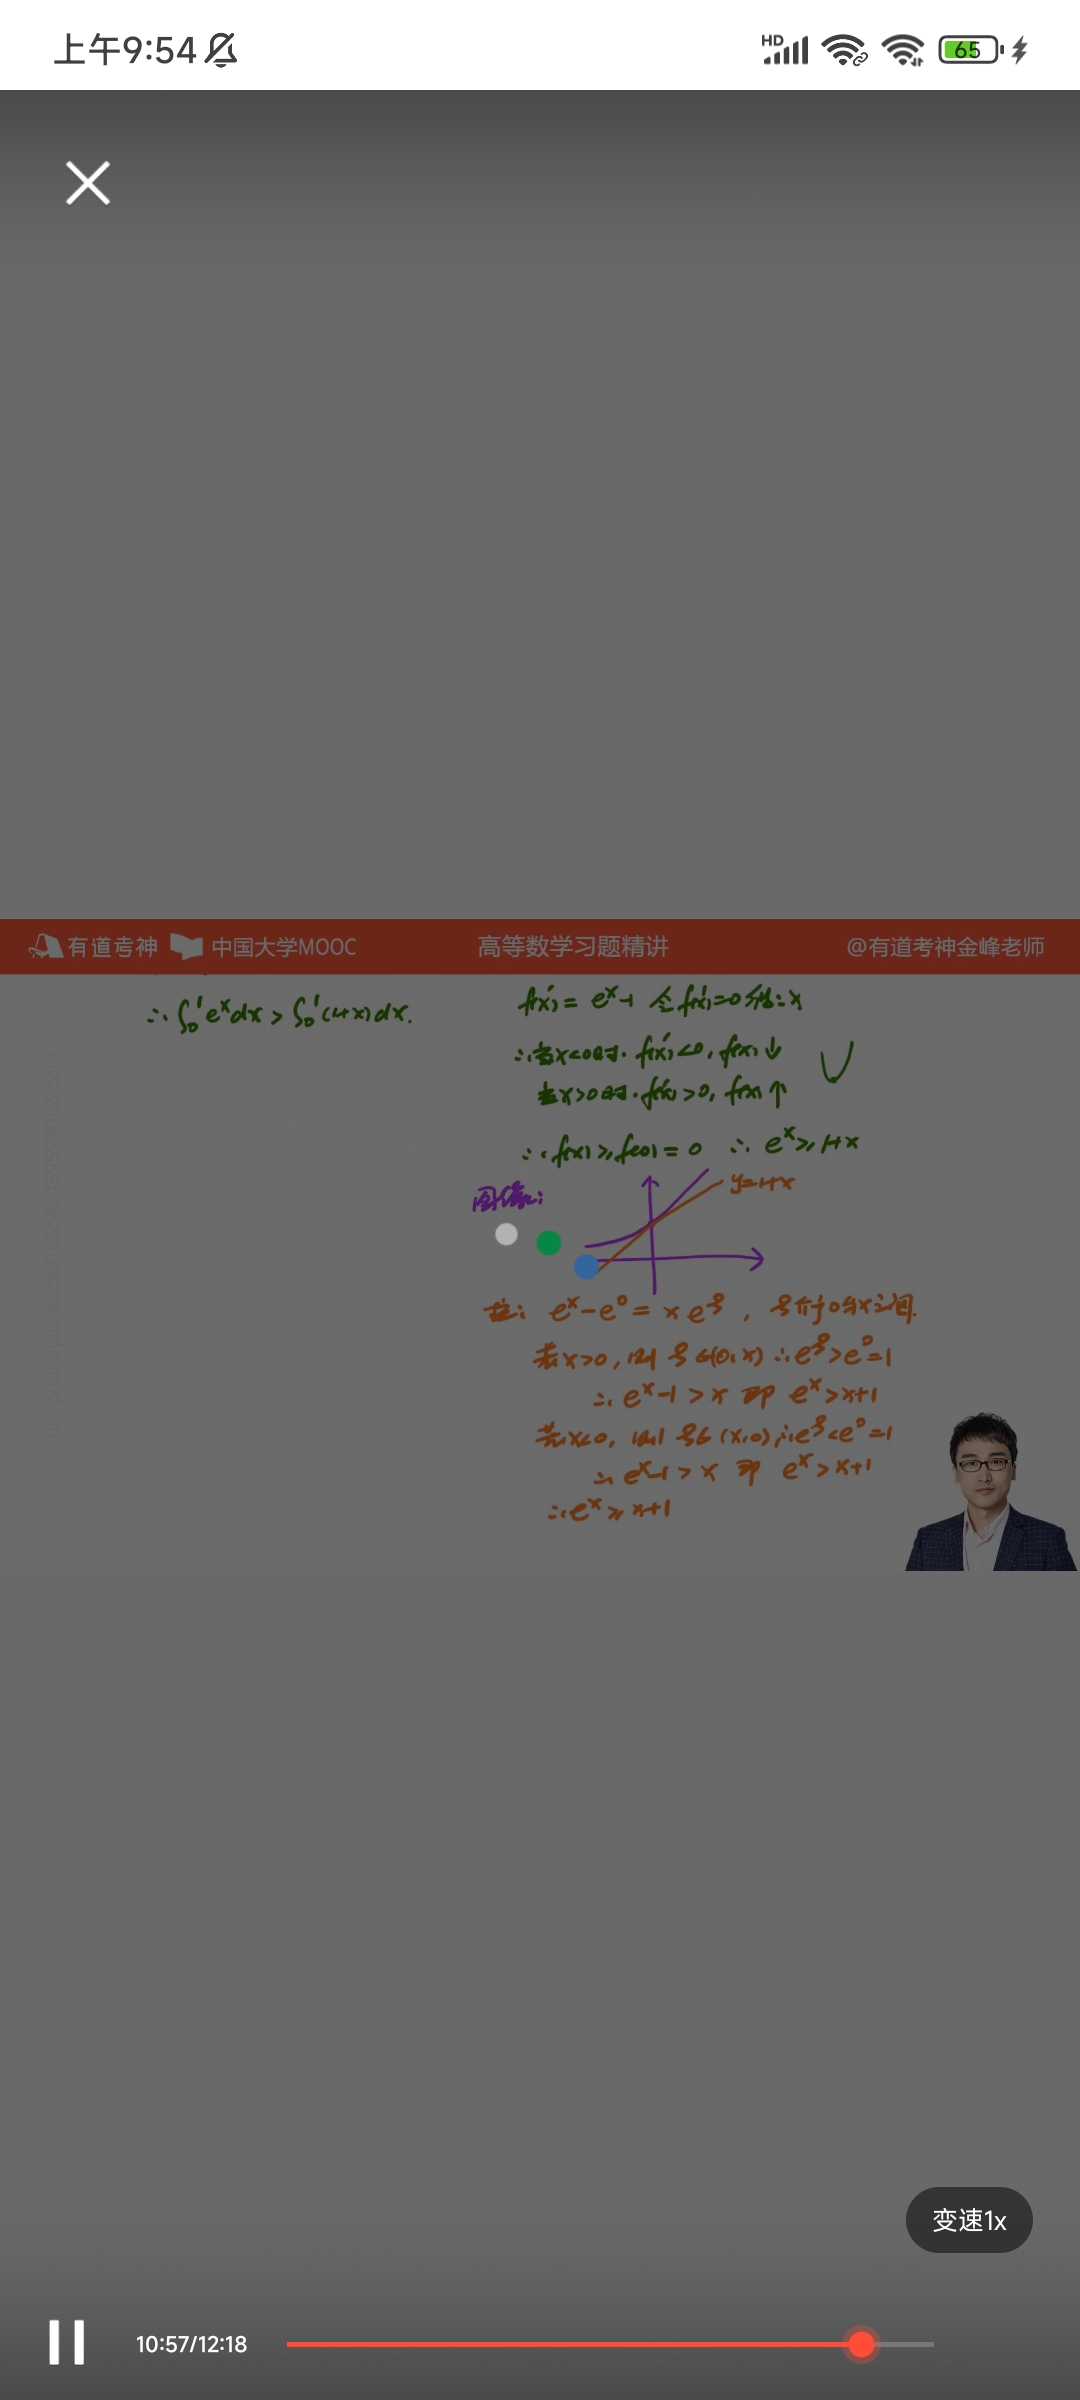 上午9:54
HD
65
有道考神 中国大学MOOC 高等数学习题精讲 @有道考神金峰老师
∴ ∫₀¹eˣdx > ∫₀¹(1+x)dx.
f'(x) = eˣ-1 令f'(x)=0 得: x
∴当x<0时. f'(x)<0, f(x)↓
当x>0时. f'(x)>0, f(x)↑
∴ f(x)≥f(0)=0 ∴ eˣ≥1+x
图像:
y=1+x
拉: eˣ-e⁰ = x e^ξ, ξ介于0与x之间.
若x>0, 则 ξ∈(0,x) ∴e^ξ>e⁰=1
∴ eˣ-1 > x 即 eˣ>x+1
若x<0, 则 ξ∈(x,0), ∴e^ξ<e⁰=1
∴ eˣ-1 > x 即 eˣ>x+1
∴eˣ≥x+1
变速1x
10:57/12:18